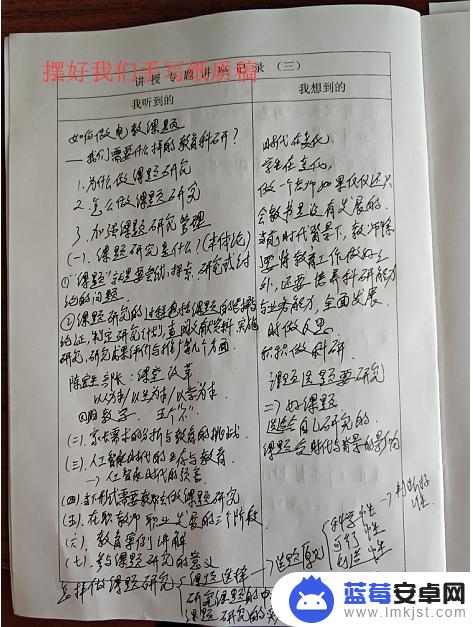 摆好我们手写纸质稿
讲授专题讲座记录（三）
我听到的
如何做电教课题
——我们需要什么样的教育科研？
1.为什么做课题研究
2.怎么做课题研究
3.加强课题研究管理
(一).课题研究是什么？(本体论)
①“课题”就是要尝试,探索,研究或讨
论的问题.
②课题研究的过程包括课题的选择
论证,制定研究计划,查阅文献资料,实施
研究,研究成果评价与推广等几个方面.
课堂改革
以为本/以为本/以学为本.
回归教学.
(二).需求的分析与教育的挑战.
(三).人工智能时代的生存与教育
→人工智能时代的
(四)当下形式需要教师去做课题研究
(五).在职教师职业发展的三个阶段.
(六).教育案例讲解
(七).参与课题研究的意义
怎样做课题研究
课题选择→选题原则
科学性
可行性
创造性
研究课题的中
课题研究的
我想到的
时代在变化
学生在变化,
做一个老师如果仅仅还只
会教书是没有发展的.
当前时代背景下,教师除
要将教育工作做好之
外,还要培养科研能力
与业务能力,全面发展.
时做反思
积极做科研.
课题选题要研究
二)好课题
选适合自己研究的.
课题受时代与背景的影响
蓝莓安卓网
www.lmkjst.com